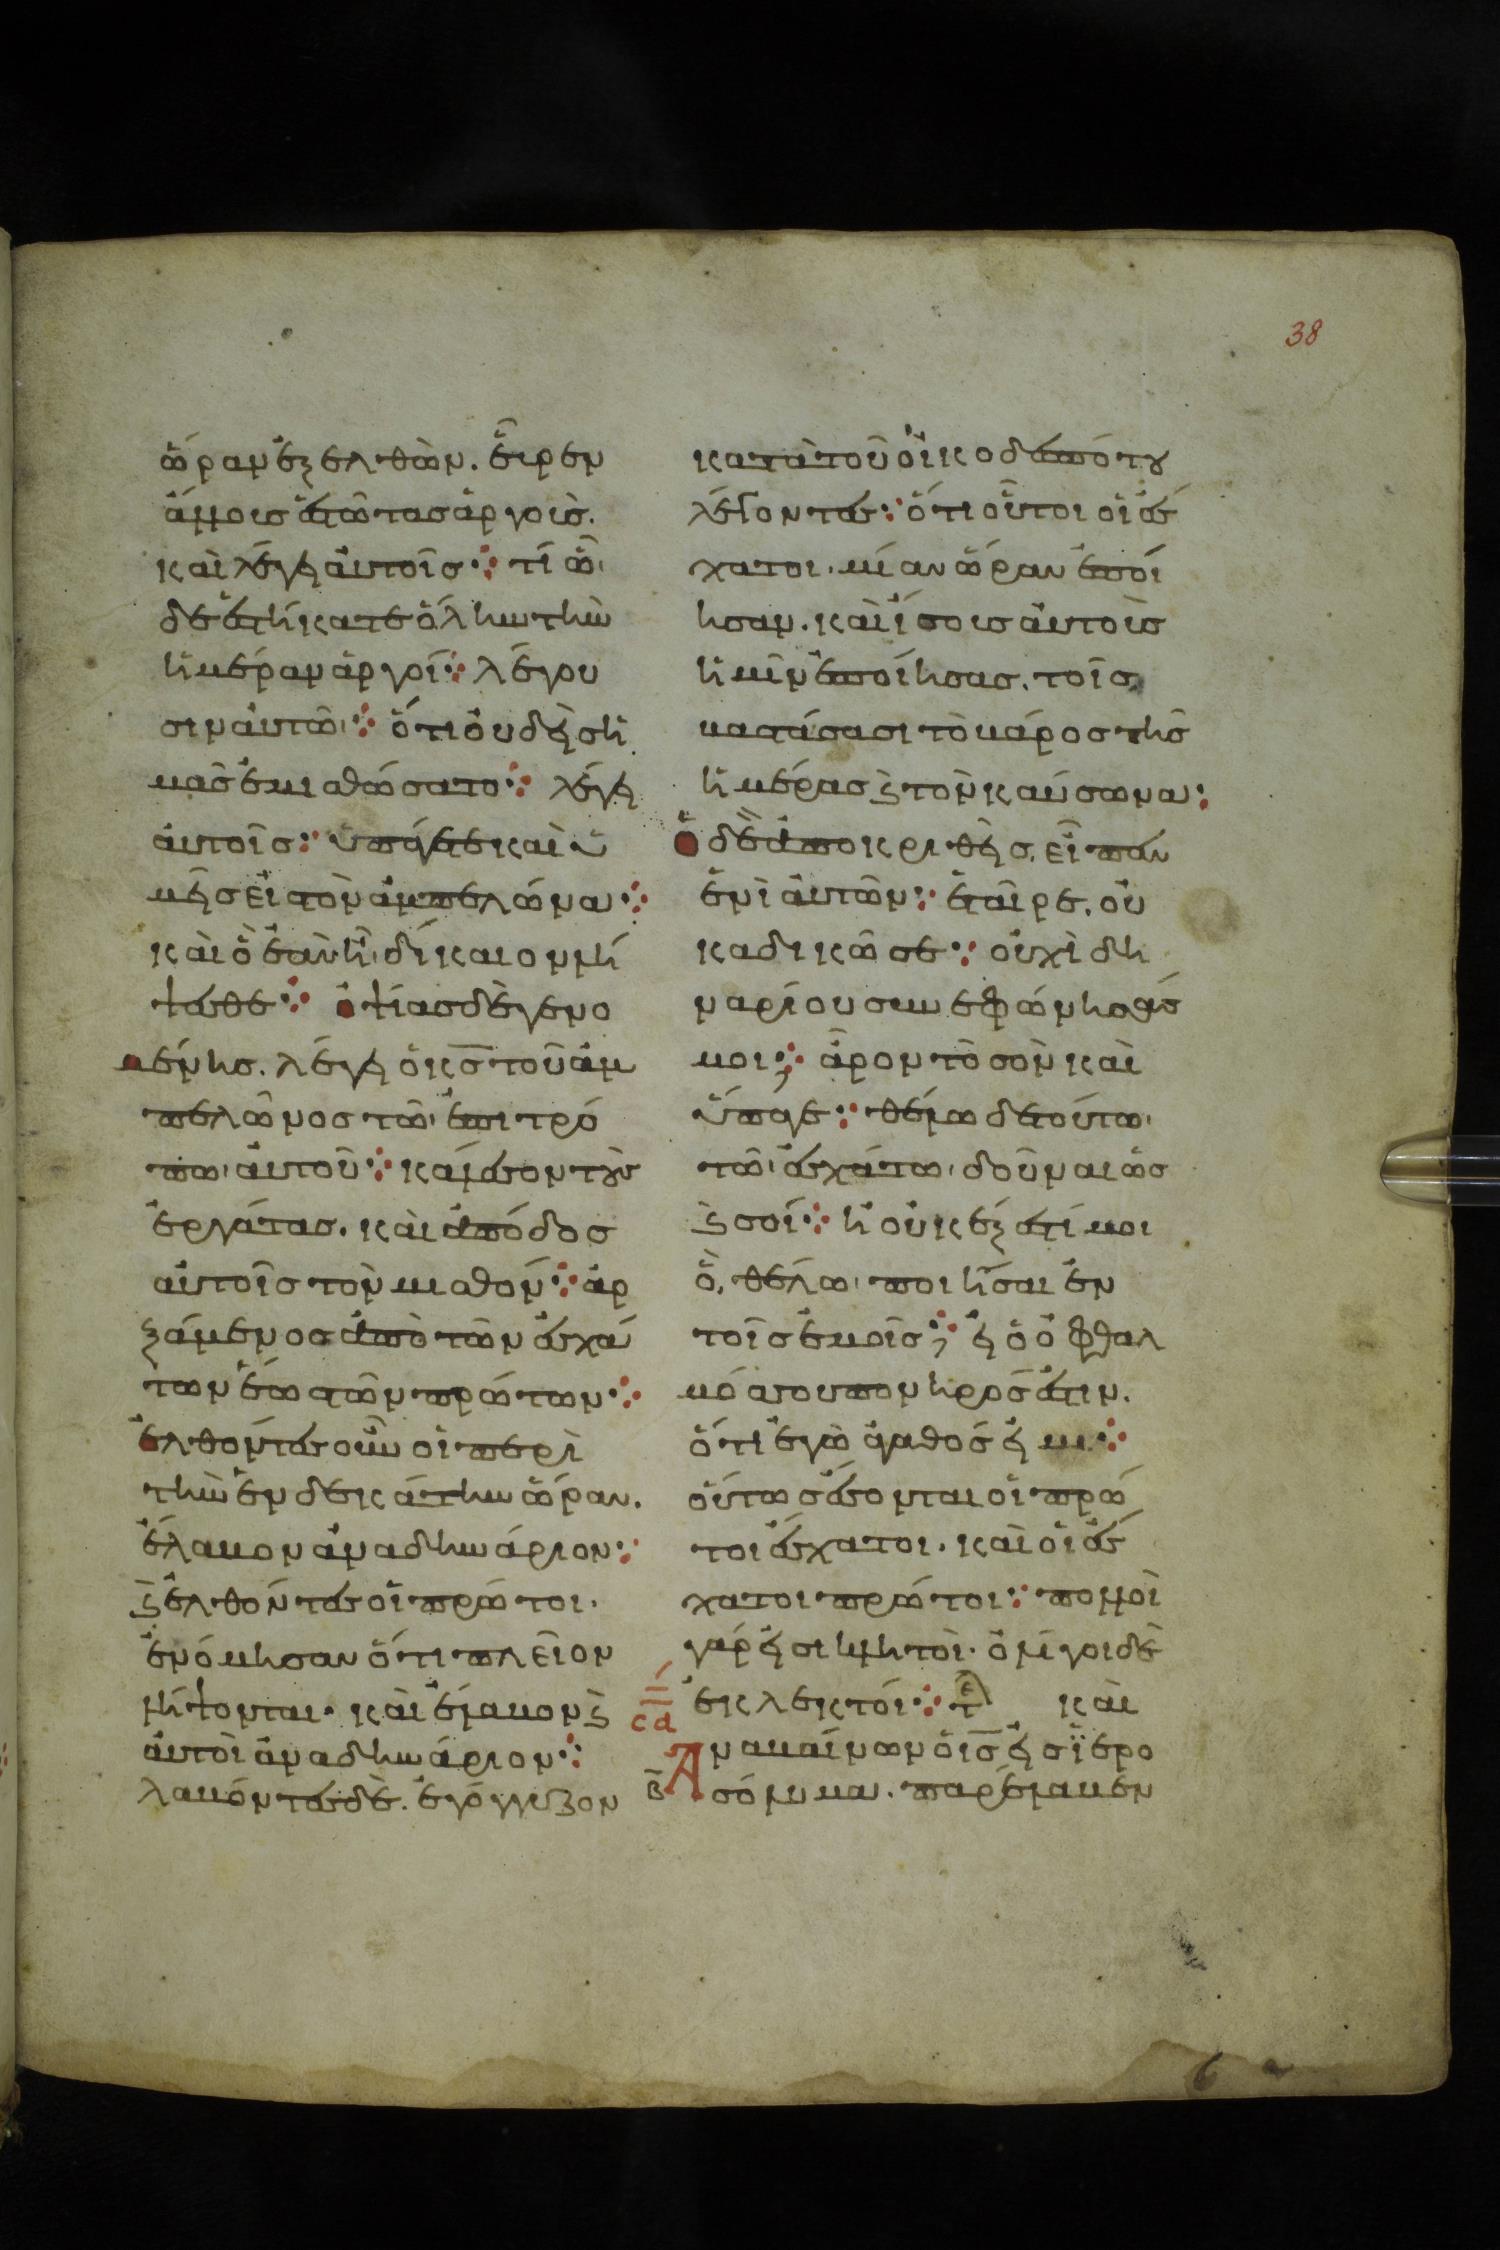 38
ὥραν ἐξελθὼν. εὗρεν
ἄλλους ἑστῶτας ἀργοὺς.
καὶ λέγει αὐτοῖς· τί ὧ
δε ἑστήκατε ὅλην τὴν
ἡμέραν ἀργοί· λέγου
σιν αὐτῶ· ὅτι οὐδεὶς ἡ
μᾶς ἐμισθώσατο· λέγει
αὐτοῖς· ὑπάγετε καὶ ὑ
μεῖς εἰς τὸν ἀμπελῶνα·
καὶ ὃ ἐὰν ἦ δίκαιον λή
ψεσθε· ὀψίας δὲ γενο
μένης. λέγει ὁ κς τοῦ ἀμ
πελῶνος τῶ ἐπιτρό
πω αὐτοῦ· κάλεσον τοὺς
ἐργάτας. καὶ ἀπόδος
αὐτοῖς τὸν μισθόν· ἀρ
ξάμενος ἀπὸ τῶν ἐσχά
των ἕως τῶν πρώτων·
ἐλθόντες οὖν οἱ περὶ
τὴν ἑνδεκάτην ὥραν.
ἔλαβον ἀνὰ δηνάριον·
ϗ ἐλθόντες οἱ πρώτοι.
ἐνόμησαν ὅτι πλεῖον
λήψονται. καὶ ἔλαβον ϗ
αὐτοὶ ἀνὰ δηνάριον·
λαβόντες δὲ. ἐγόγγυζον
κατὰ τοῦ οἰκοδεσπότου
λέγοντες· ὅτι οὗτοι οἱ ἔσ
χατοι. μίαν ὥραν ἐποί
ησαν. καὶ ἴσους αὐτοὺς
ἡμῖν ἐποίησας. τοῖς
βαστάσασι τὸ βάρος τῆς
ἡμέρας ϗ τὸν καύσωνα·
ὁ δὲ ἀποκριθεὶς. εἶπεν
ἑνὶ αὐτῶν· ἑταῖρε. οὐ
κ ἀδικῶ σε· οὐχὶ δη
ναρίου συνεφώνησάς
μοι; ἆρον τὸ σὸν καὶ
ὕπαγε· θέλω δὲ τούτω
τῶ ἐσχάτω δοῦναι ὡς
ϗ σοί· ἢ οὐκ ἔξεστί μοι
ὃ θέλω ποιῆσαι ἐν
τοῖς ἐμοῖς; εἰ ὁ ὀφθαλ
μός σου πονηρός ἐστιν.
ὅτι ἐγὼ ἀγαθός εἰμι·
οὕτως ἔσονται οἱ πρώ
τοι ἔσχατοι. καὶ οἱ ἔσ
χατοι πρώτοι· πολλοὶ
γάρ εἰσι κλητοὶ. ὀλίγοι δὲ
ἐκλεκτοί· τε καὶ
ἀναβαίνων ὁ ις εἰς ϊερο
σόλυμα. παρέλαβεν